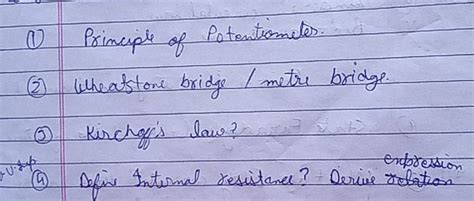 (1) Principle of Potentiometer.
(2) Wheatstone bridge / metre bridge.
(3) Kirchoff's law?
expression
v.v.imp (4) Define Internal resistance? Derive relation